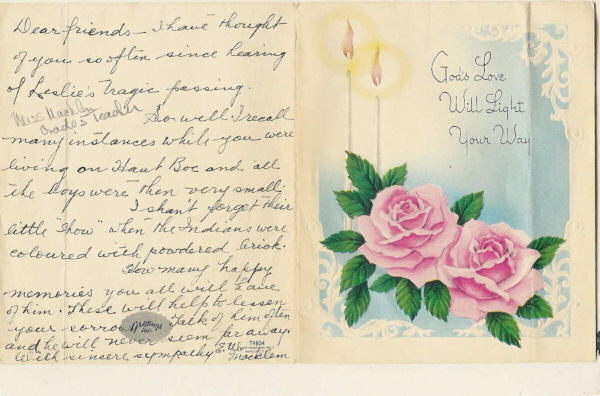 Dear friends — I have thought
of you so often since hearing
of Leslie's tragic passing.
Miss Macklem
Grade 2 Teacher
So well I recall
many instances while you were
living on Haut Boc and all
the boys were then very small;
I shan't forget their
little "show" when the Indians were
coloured with powdered brick.
How many happy
memories you all will have
of him. These will help to lessen
your sorrow. Talk of him often
and he will never seem far away.
With sincere sympathy E. W. Macklem
Greetings
Inc.
T9834
God's Love
Will Light
Your Way